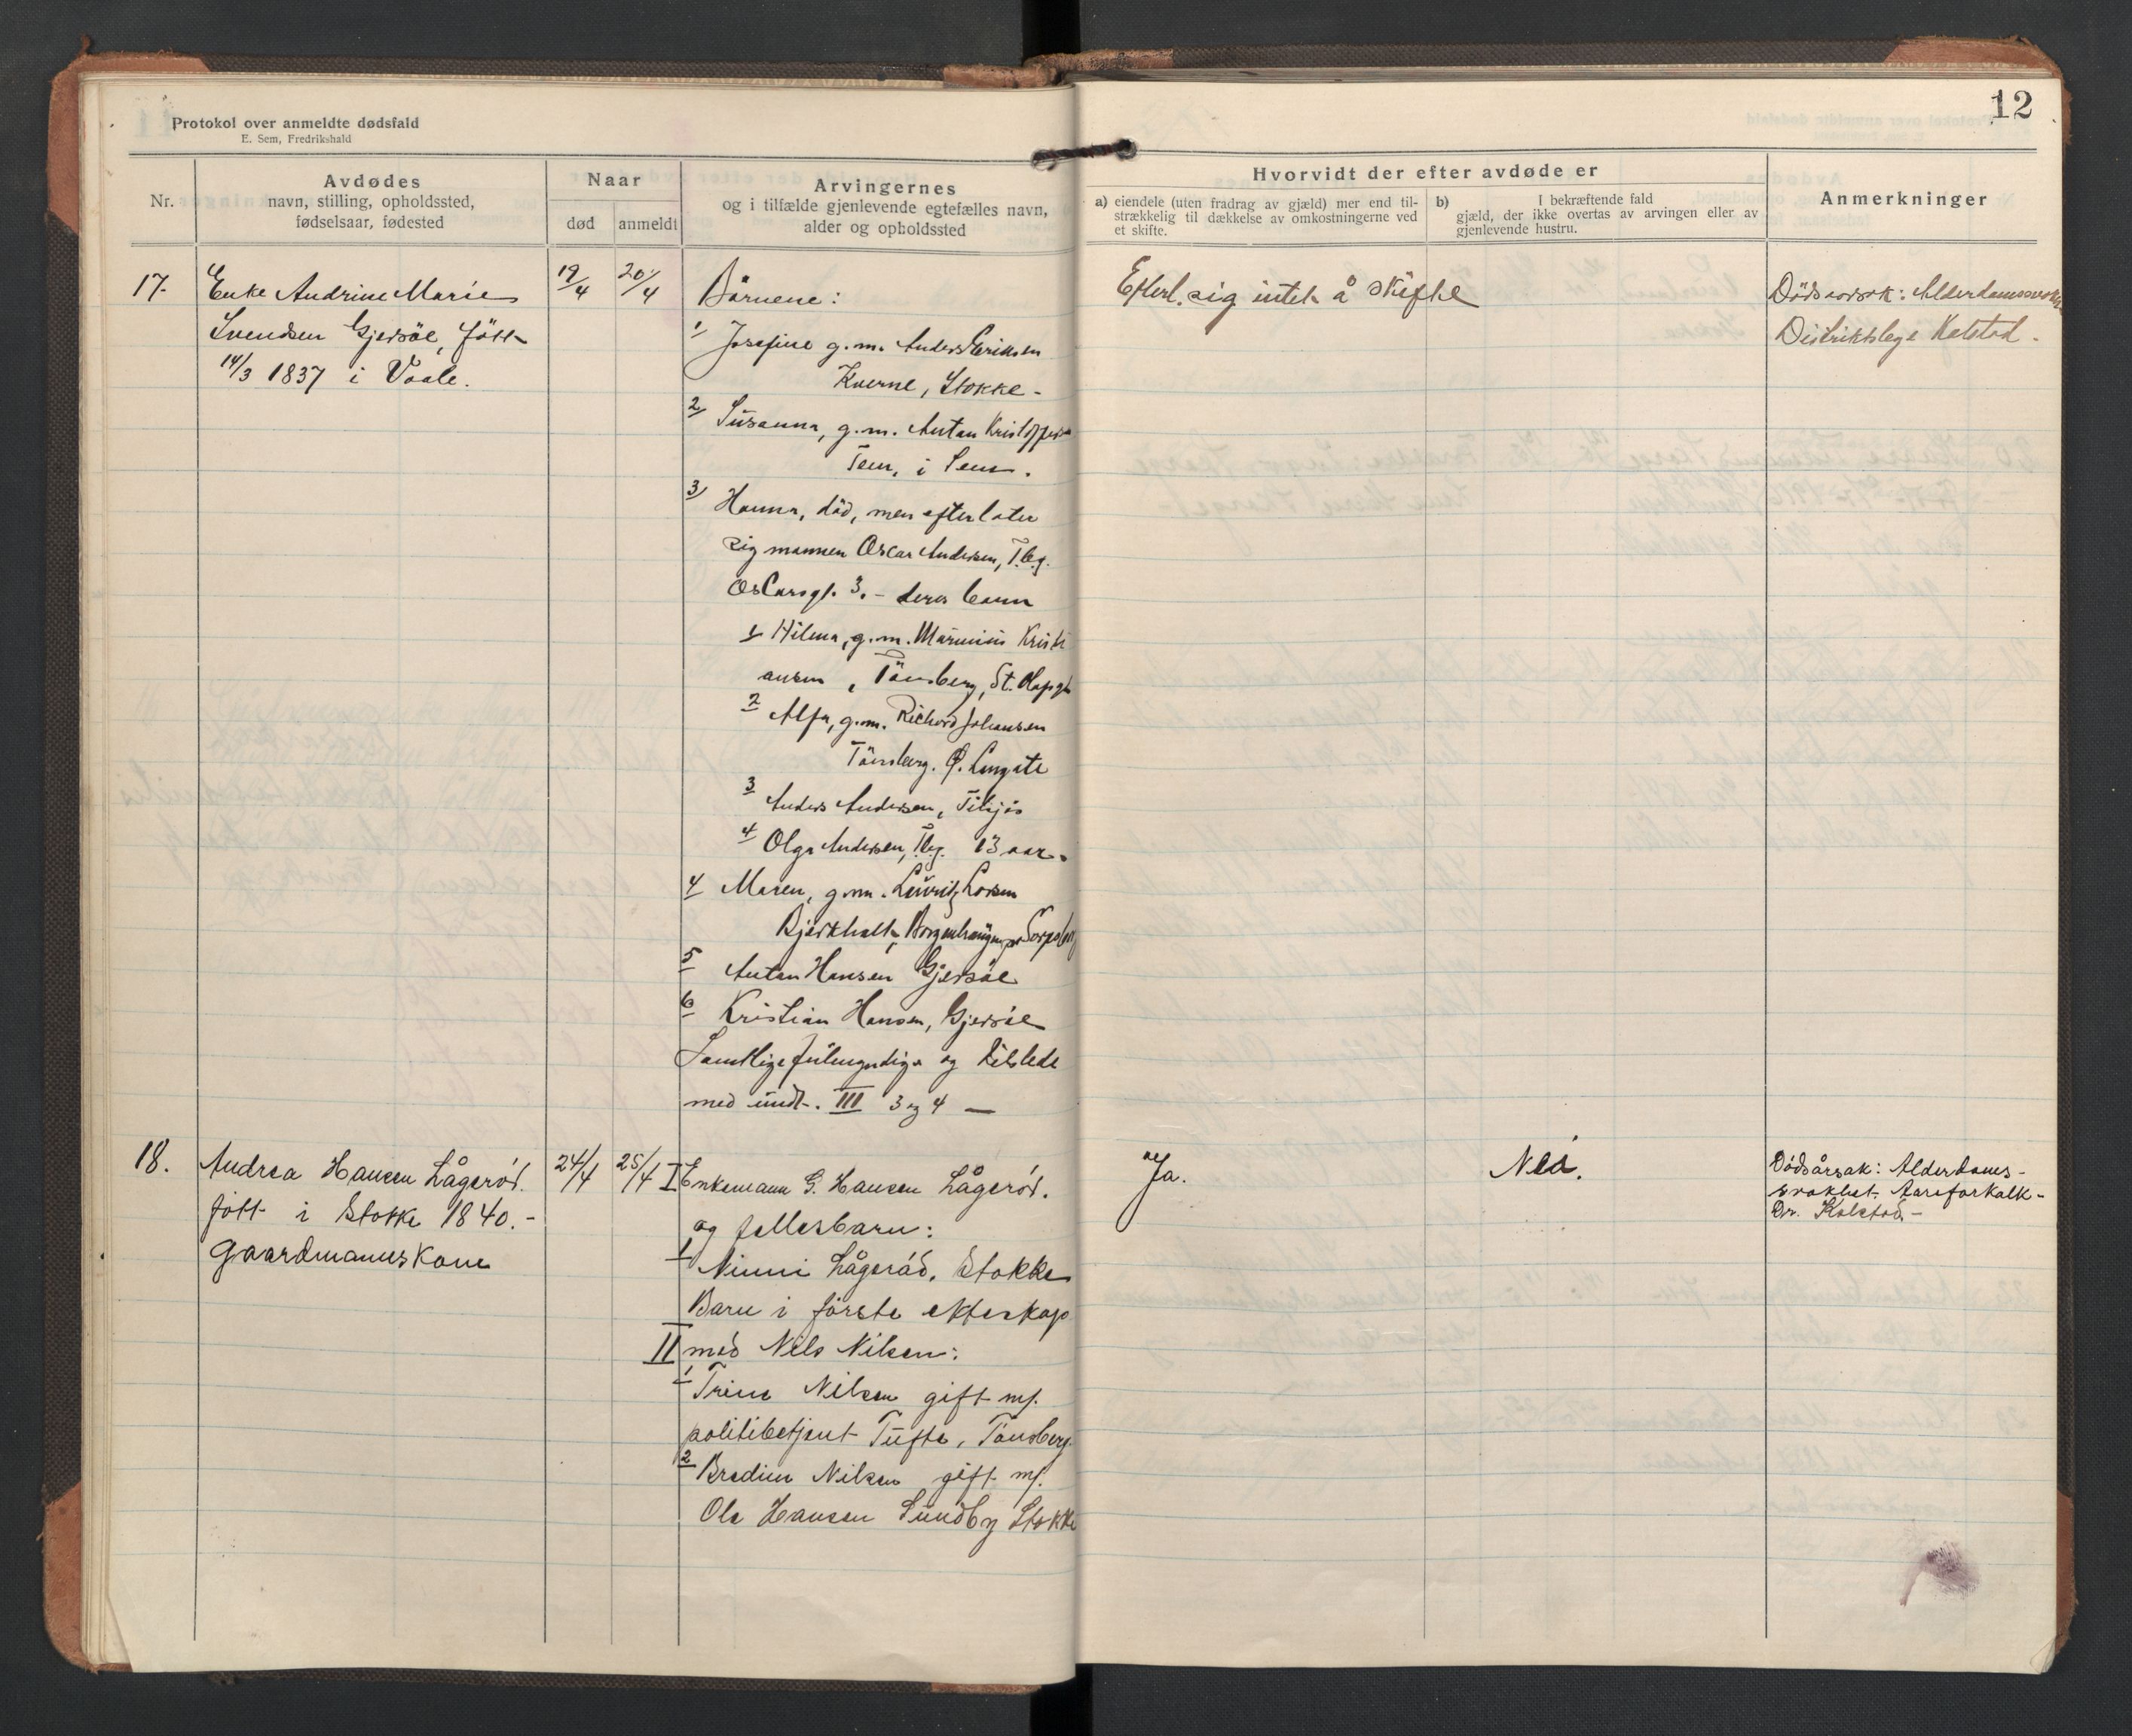 Protokol over anmeldte dødsfald
E. Sem, Fredrikshald
12
Nr.
Avdødes
navn, stilling, opholdssted,
fødselsaar, fødested
Naar
død
anmeldt
Arvingernes
og i tilfælde gjenlevende egtefælles navn,
alder og opholdssted
Hvorvidt der efter avdøde er
a) eiendele (uten fradrag av gjæld) mer end til-
strækkelig til dækkelse av omkostningerne ved
et skifte.
b) I bekræftende fald
gjæld, der ikke overtas av arvingen eller av
gjenlevende hustru.
Anmerkninger
17.
Enke Andrine Marie
Svendsen Gjersöe, född
14/3 1837 i Vaale.
19/4
20/4
Börnene:
1/ Josefine g.m. Anders Eriksen
Kverne, Stokke -
2/ Susanna, g.m. Anton Kristoffersen
Tem, i Sem.
3/ Hanna, död, men efterlater
sig mannen Oscar Andersen, Tbg.
Oscarsgt. 3. - deres barn
1 Hilma, g.m. Marinius Kristi
ansen, Tönsberg, St. Olafsgt
2 Alfa, g.m. Richard Johansen
Tönsberg. Ö. Langate
3 Anders Andersen, Tilsjös
4 Olga Andersen, Tbg. 13 aar.
4 Maren, g.m. Lauritz Larsen
Bjerkholt, Borgenhaugen pr Sarpsborg
5 Anton Hansen Gjersöe
6 Kristian Hansen, Gjersöe
Samtlige fuldmyndige og tilstede
med undt. III 3 og 4 —
Efterl. sig intet å skifte
Dödsaarsak: Alderdomssvakh.
Distriktslege Kolstad.
18.
Andrea Hansen Lågeröd.
fött i Stokke 1840.-
gaardmannskone
24/4
25/4
I Enkemann G. Hansen Lågeröd.
og fellesbarn:
1 Ninni Lågeröd, Stokke
Barn i förste ekteskap
II med Nils Nilsen:
1 Trine Nilsen gift m/.
politibetjent Tufte, Tönsberg.
2 Bredine Nilsen gift m/.
Ole Hansen Sundby Stokke
Ja.
Nei.
Dödsårsak: Alderdoms-
svakhet. Aareforkalk-
Dr. Kolstad.-